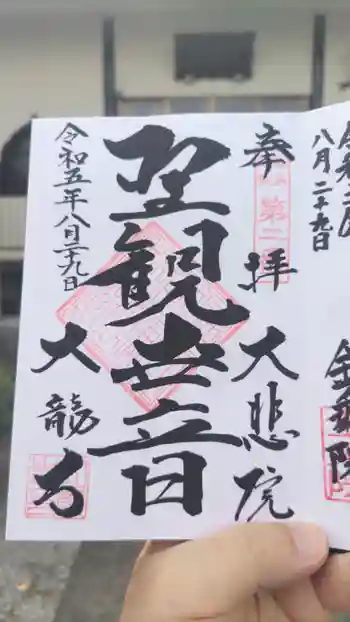 奉拝 大悲院
第二
聖観世音
令和五年八月二十九日
大龍寺
八月二十九日